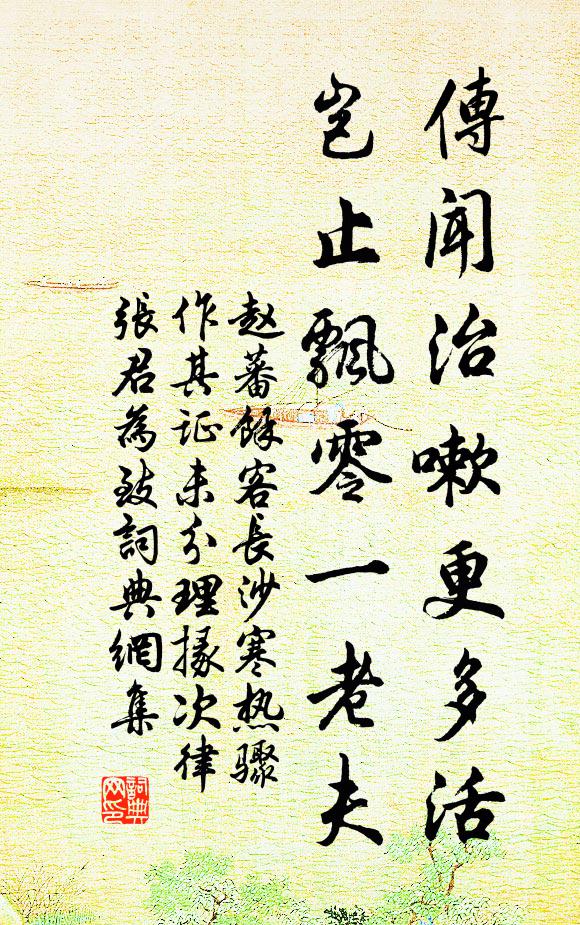 傳聞治嗽更多活
豈止飄零一老夫
赵蕃餘客長沙寒热驟
作其证未分理掾次律
張君為致詞典網集
詞典网印